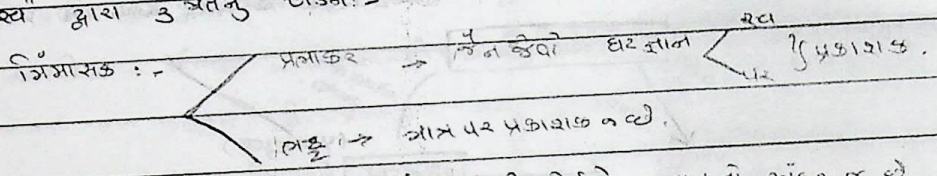 સ્વ દ્વારા 3 મતનું
મિંમાસક :- પ્રભાકર → જૈન જેવો ઘટ જ્ઞાન સ્વ પર } પ્રકાશક.
ભટ્ટ → માત્ર પર પ્રકાશક જ છે.